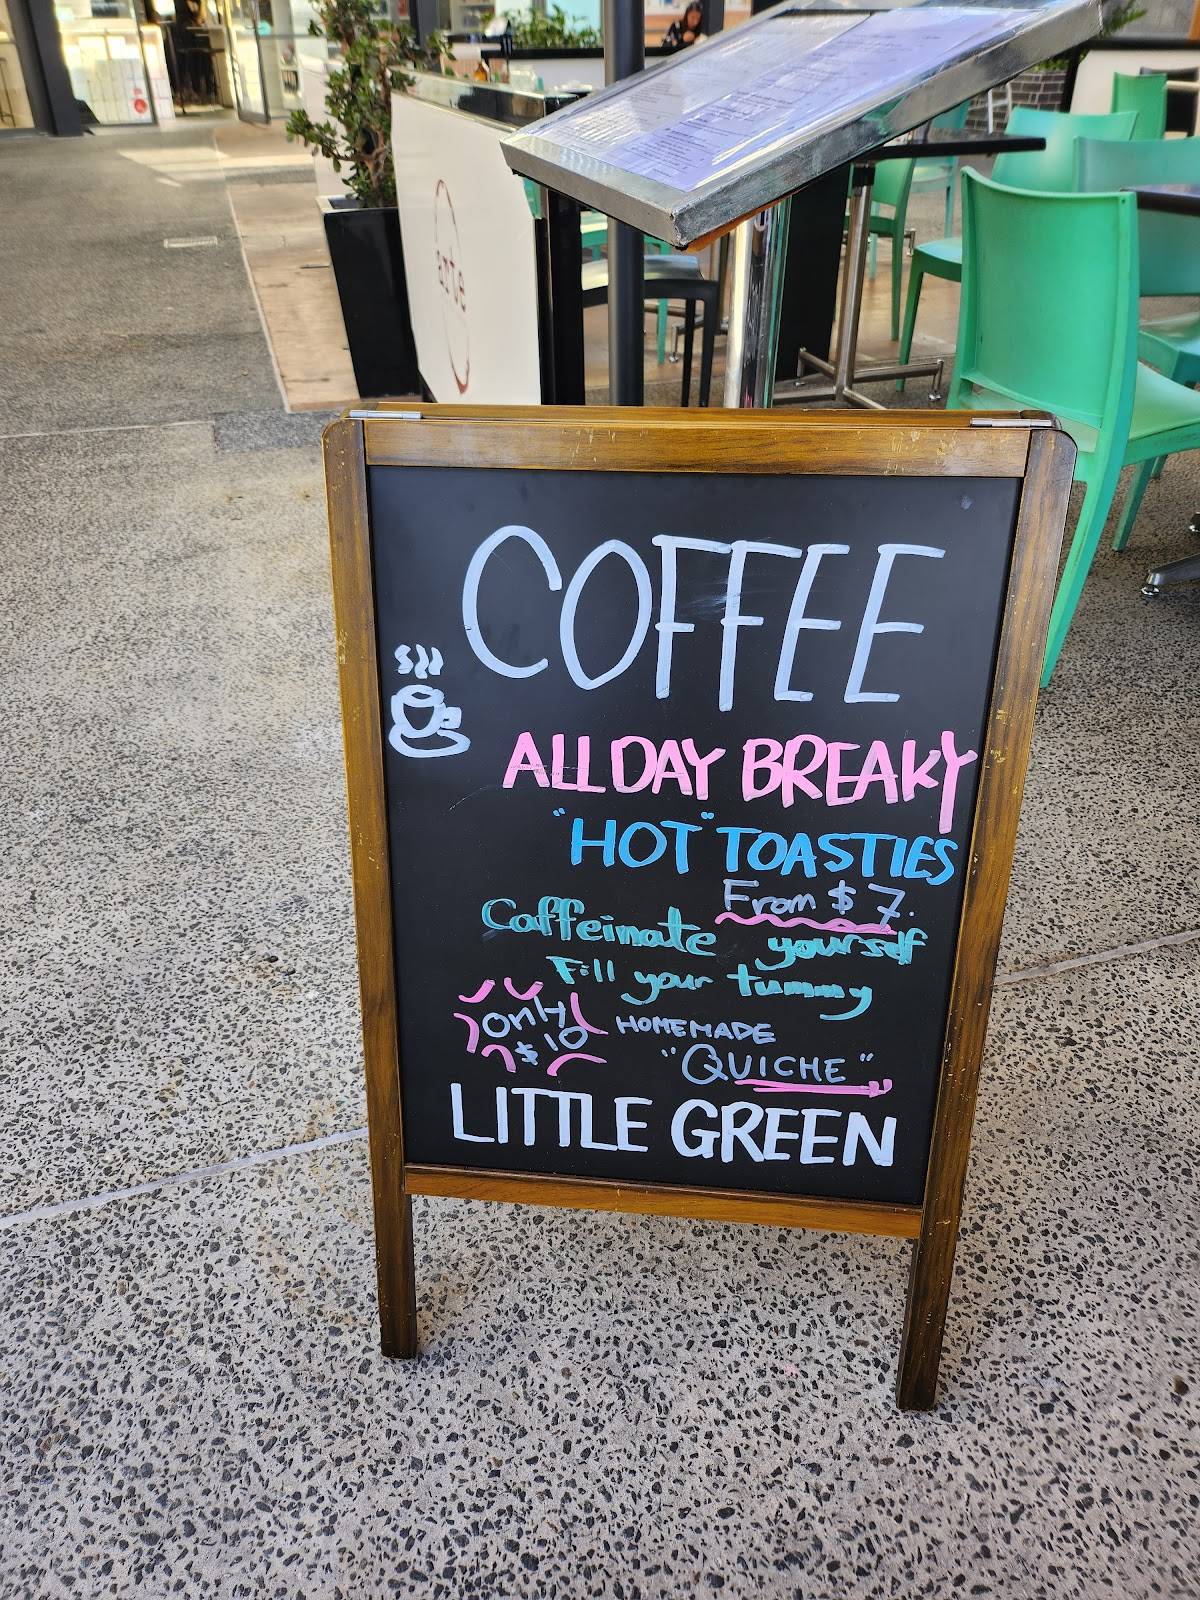 arte
COFFEE
ALL DAY BREAKY
"HOT" TOASTIES
From $7.
Caffeinate yourself
Fill your tummy
Only $10
HOMEMADE
"QUICHE"
LITTLE GREEN